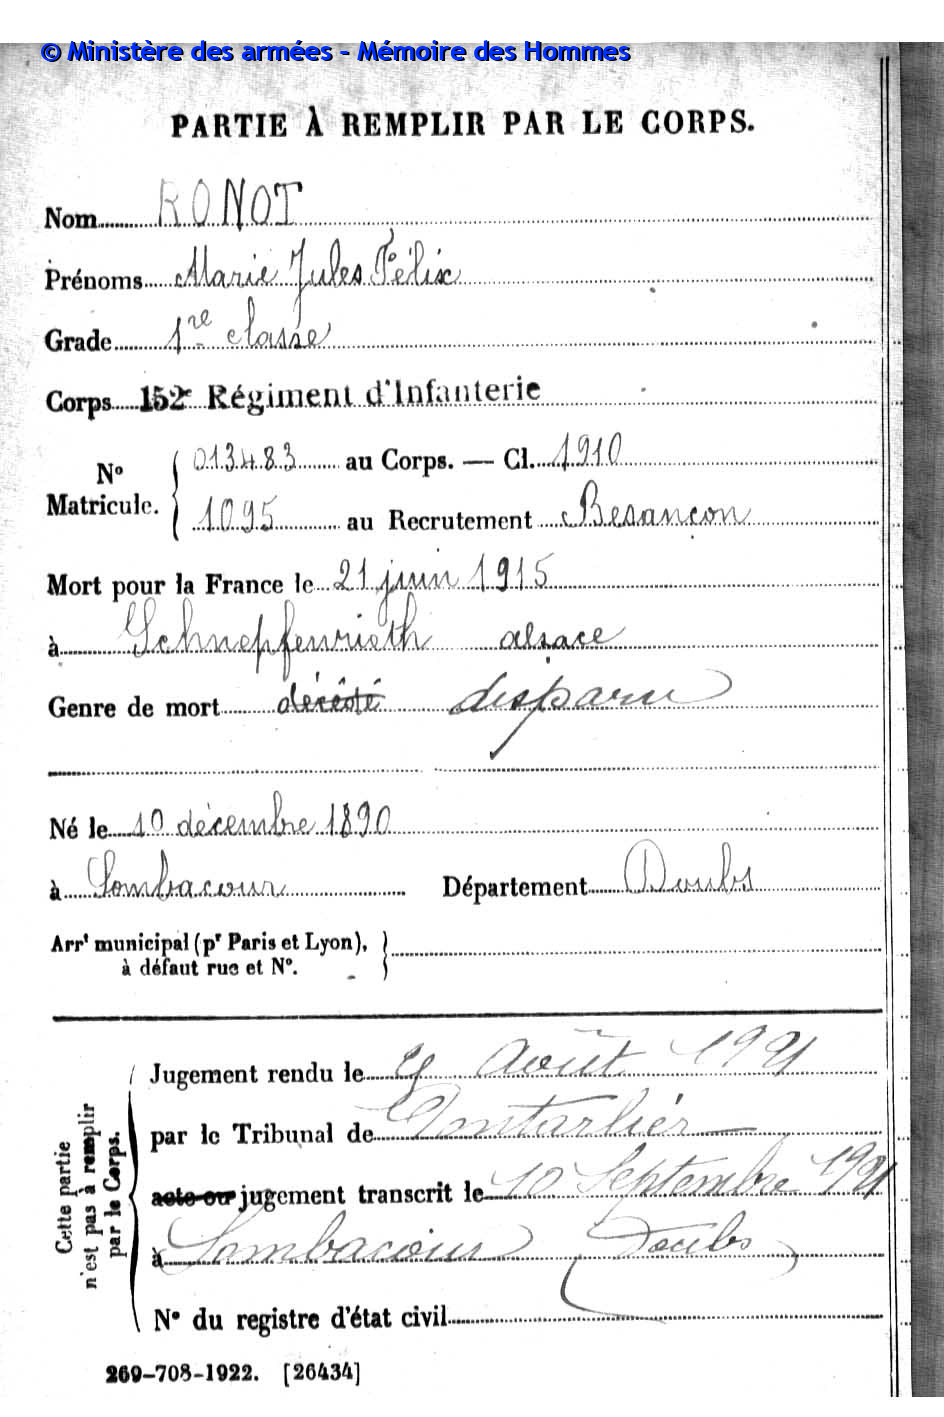 © Ministère des armées - Mémoire des Hommes
PARTIE À REMPLIR PAR LE CORPS.
Nom RONOT
Prénoms Marie Jules Félix
Grade 1re classe
Corps 152e Régiment d'Infanterie
N° Matricule. 013483 au Corps. — Cl. 1910
1095 au Recrutement Besançon
Mort pour la France le 21 juin 1915
à Schnepfenrieth alsace
Genre de mort disparu
Né le 10 décembre 1890
à Sombacour Département Doubs
Arrt municipal (pr Paris et Lyon),
à défaut rue et N°.
Cette partie
n'est pas à remplir
par le Corps.
Jugement rendu le Août 1921
par le Tribunal de Pontarlier
acte ou jugement transcrit le 10 Septembre 1921
à Sombacour (Doubs)
N° du registre d'état civil
269-708-1922. [26434]